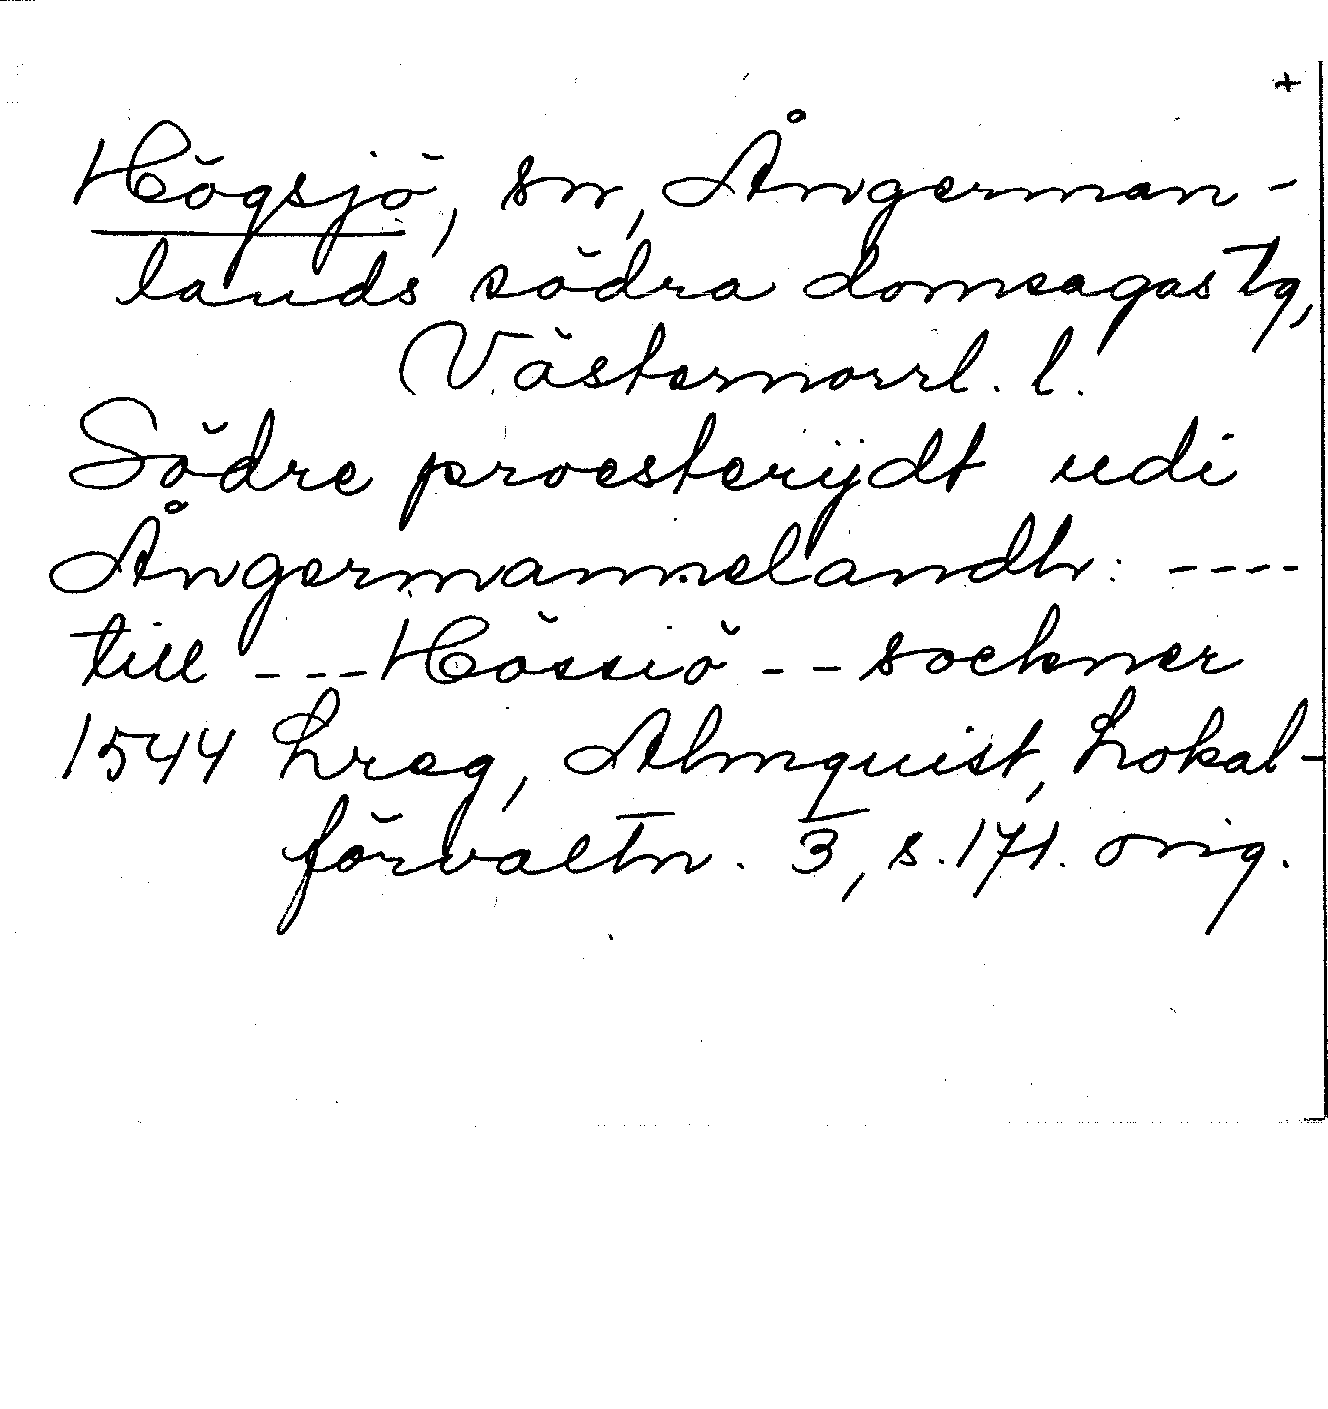 +
Högsjö, sn, Ångerman-
lands södra domsagas tg,
Västernorrl. l.
Södre proesterijdt udi
Ångermannelandh: ----
till --- Hössiö -- sockner
1544 Lreg, Almquist, Lokal-
förvaltn. 3, s. 171. orig.